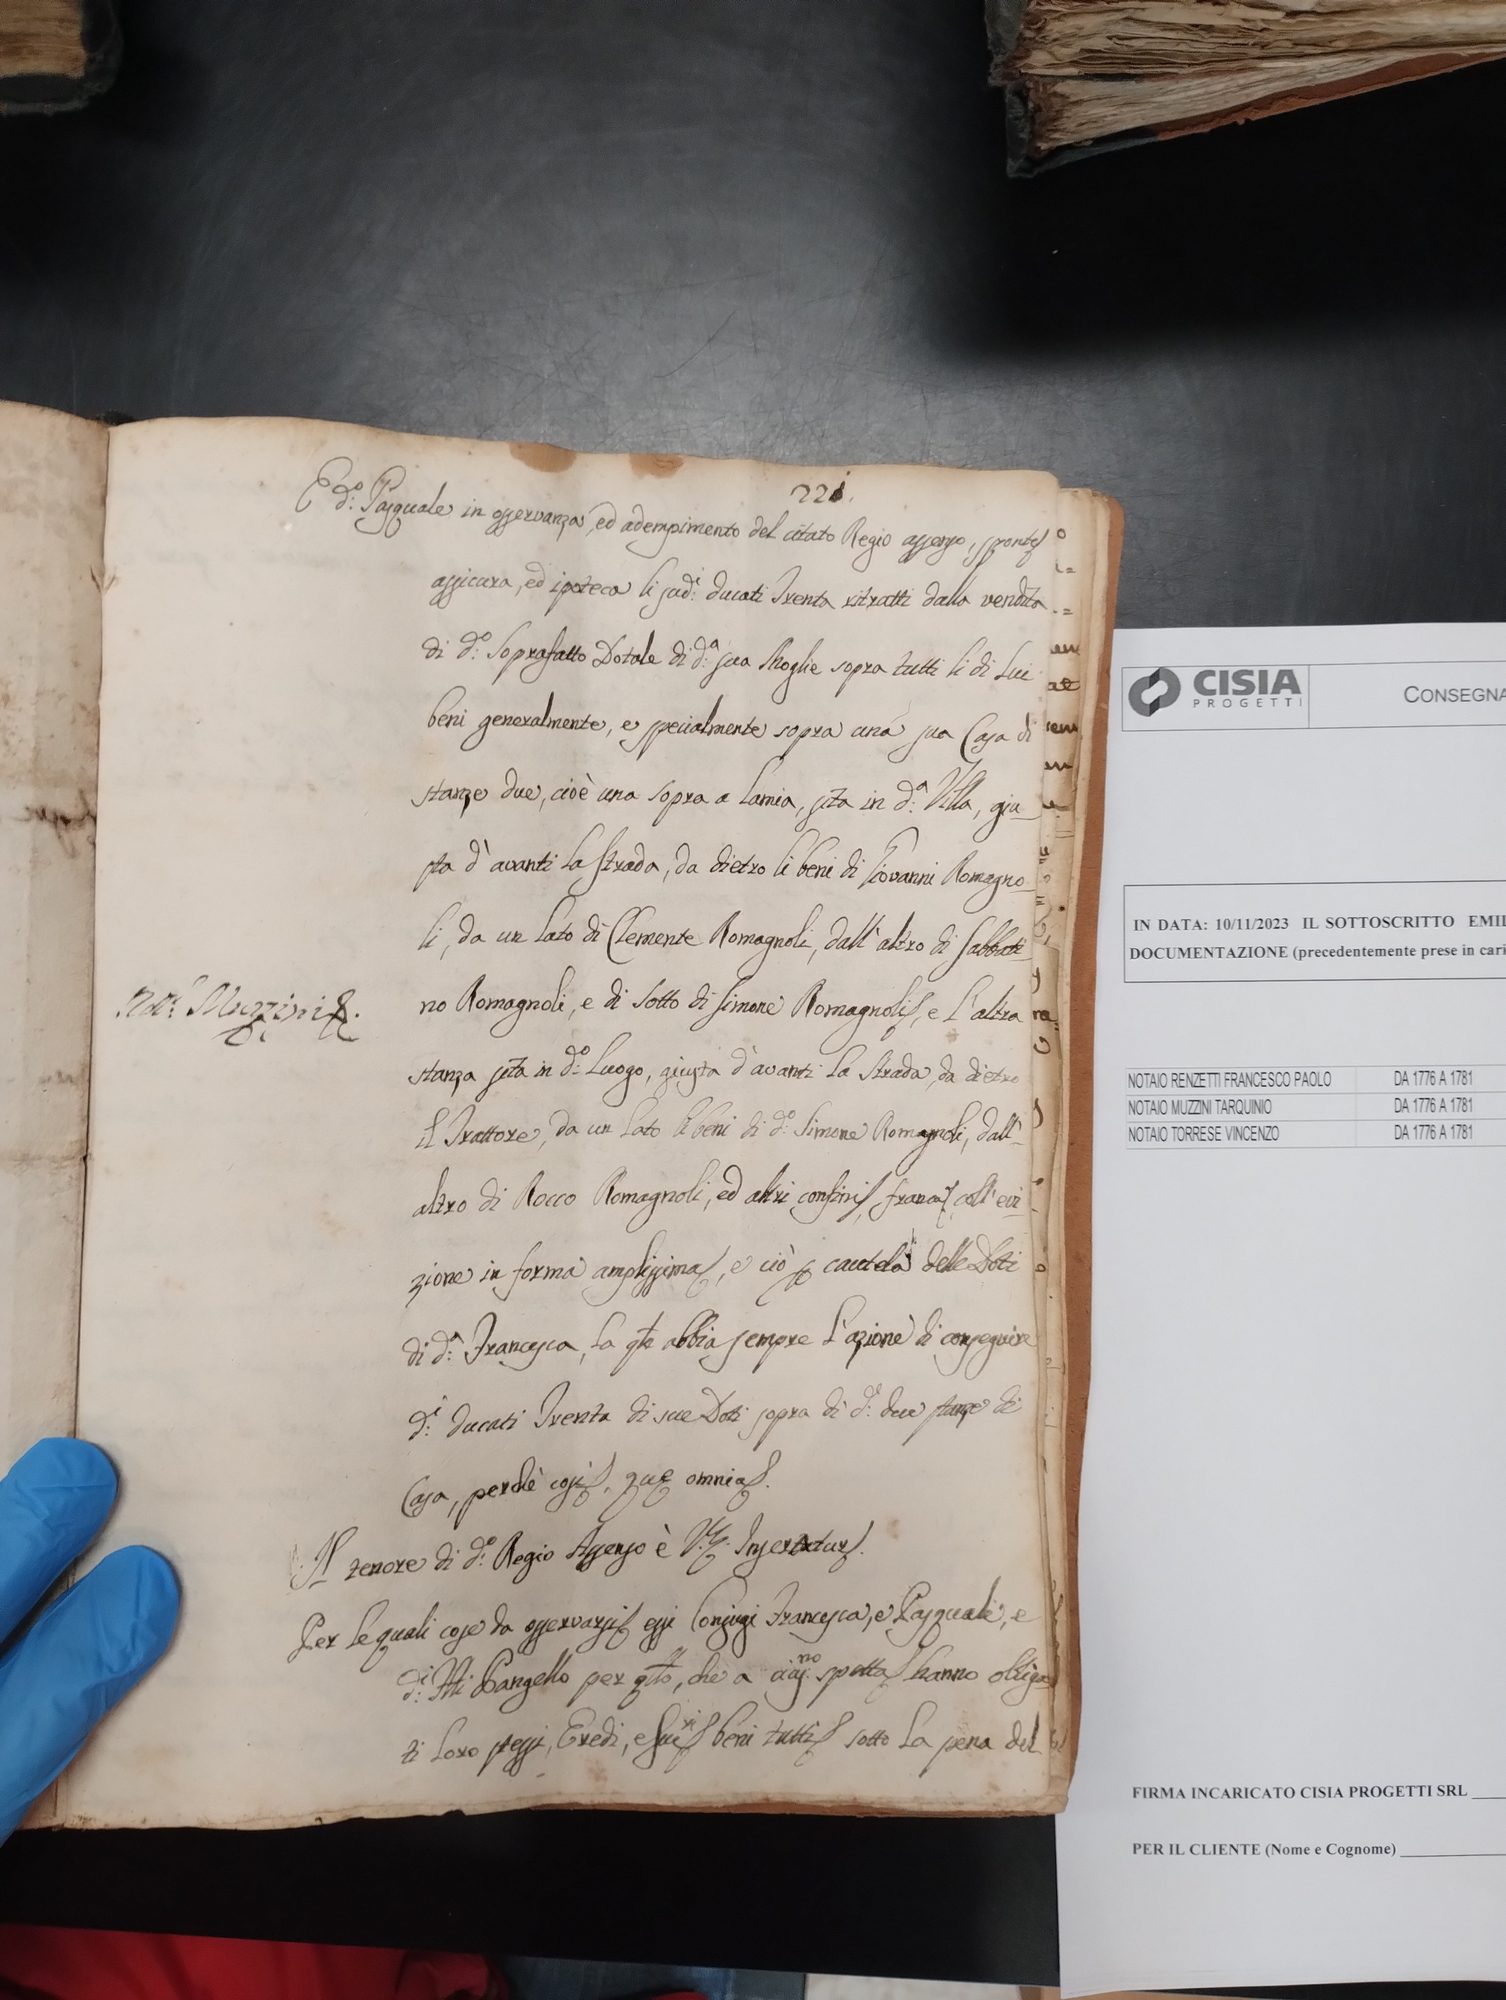 221.
E d:º Pasquale in osservanza, ed adempimento del citato Regio assenso, sponte
assicura, ed ipoteca li sud:i ducati Trenta ritratti dalla vendita
di d:º Soprafatto Dotale di d:ª sua Moglie sopra tutti li di Lui
beni generalmente, e specialmente sopra una sua Casa di
stanze due, cioè una sopra a Lamia, sita in d:ª Villa, giu-
sta d'avanti la strada, da dietro li beni di Giovanni Romagno-
li, da un lato di Clemente Romagnoli, dall'altro di Sabbati-
no Romagnoli, e di sotto di Simone Romagnoli, e l'altra
stanza sita in d:º Luogo, giusta d'avanti la strada, da dietro
il Trattore, da un lato li beni di d:º Simone Romagnoli, dall'
altro di Rocco Romagnoli, ed altri confini, franca, coll'evi-
zione in forma amplissima, e ciò p cautela delle Doti
di d:ª Francesca, la qle abbia sempre l'azione di conseguire
d:i ducati Trenta di sue Doti sopra di d:e due stanze di
Casa, perchè così, que omnia.
Il tenore di d:º Regio Assenso è Inseratur.
Per le quali cose da osservarsi essi Conjugi Francesca, e Pasquale, e
d:i Pangello per qto, che a ciasno spetta hanno obliga
ti loro stessi, Eredi, e beni tutti sotto la pena del
Not:r Muzzini
CISIA
PROGETTI
CONSEGNA
IN DATA: 10/11/2023 IL SOTTOSCRITTO EMIL
DOCUMENTAZIONE (precedentemente prese in cari
NOTAIO RENZETTI FRANCESCO PAOLO DA 1776 A 1781
NOTAIO MUZZINI TARQUINIO DA 1776 A 1781
NOTAIO TORRESE VINCENZO DA 1776 A 1781
FIRMA INCARICATO CISIA PROGETTI SRL
PER IL CLIENTE (Nome e Cognome)